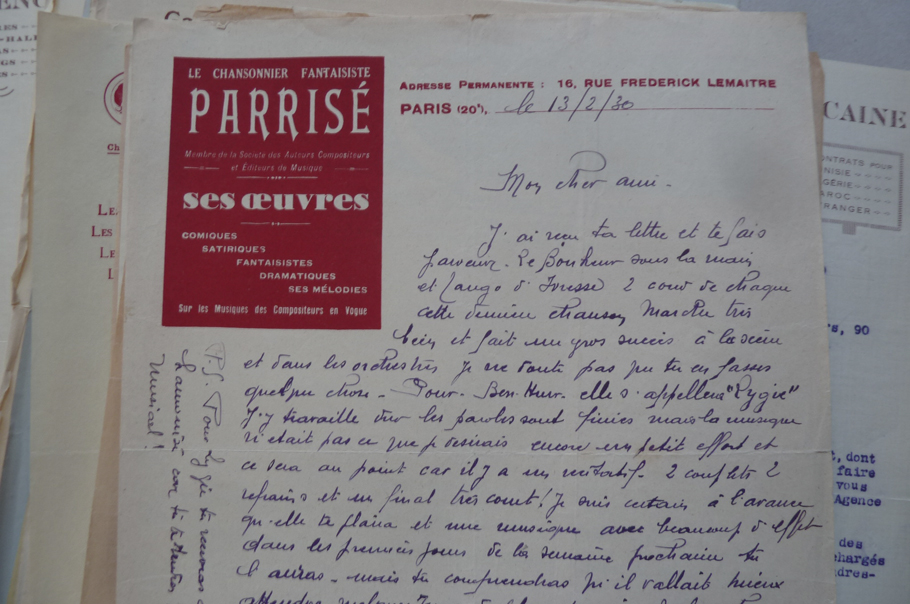 LE CHANSONNIER FANTAISISTE
PARRISÉ
Membre de la Société des Auteurs Compositeurs
et Éditeurs de Musique
ses œuvres
COMIQUES
SATIRIQUES
FANTAISISTES
DRAMATIQUES
SES MÉLODIES
Sur les Musiques des Compositeurs en Vogue
ADRESSE PERMANENTE : 16, RUE FREDERICK LEMAITRE
PARIS (20e), le 13/2/30
Mon cher ami -
J'ai reçu ta lettre et te fais
parvenir - Le Bonheur sous la main
et Tango d'Ivresse 2 de chaque
cette dernière chanson marche très
bien et fait un gros succès à la scène
et dans les orchestres je ne doute pas que tu en fasses
quelque chose - Pour Ben-Hur elle s'appellera "Lygie"
J'y travaille dur les paroles sont finies mais la musique
n'était pas ce que je désirais encore un petit effort et
ce sera au point car il y a un récitatif - 2 couplets 2
refrains et un final très court! Je suis certain à l'avance
qu'elle te plaira et une musique avec beaucoup d'effet
dans les premiers jours de la semaine prochaine tu
l'auras - mais tu comprendras qu'il vallait mieux
attendre
P.S. Pour Lygie tu recevras
musical!
CAINE
CONTRATS POUR
TUNISIE
ALGÉRIE
MAROC
ÉTRANGER
rs, 90
t, dont
faire
vous
Agence
des
chargés
ndres-